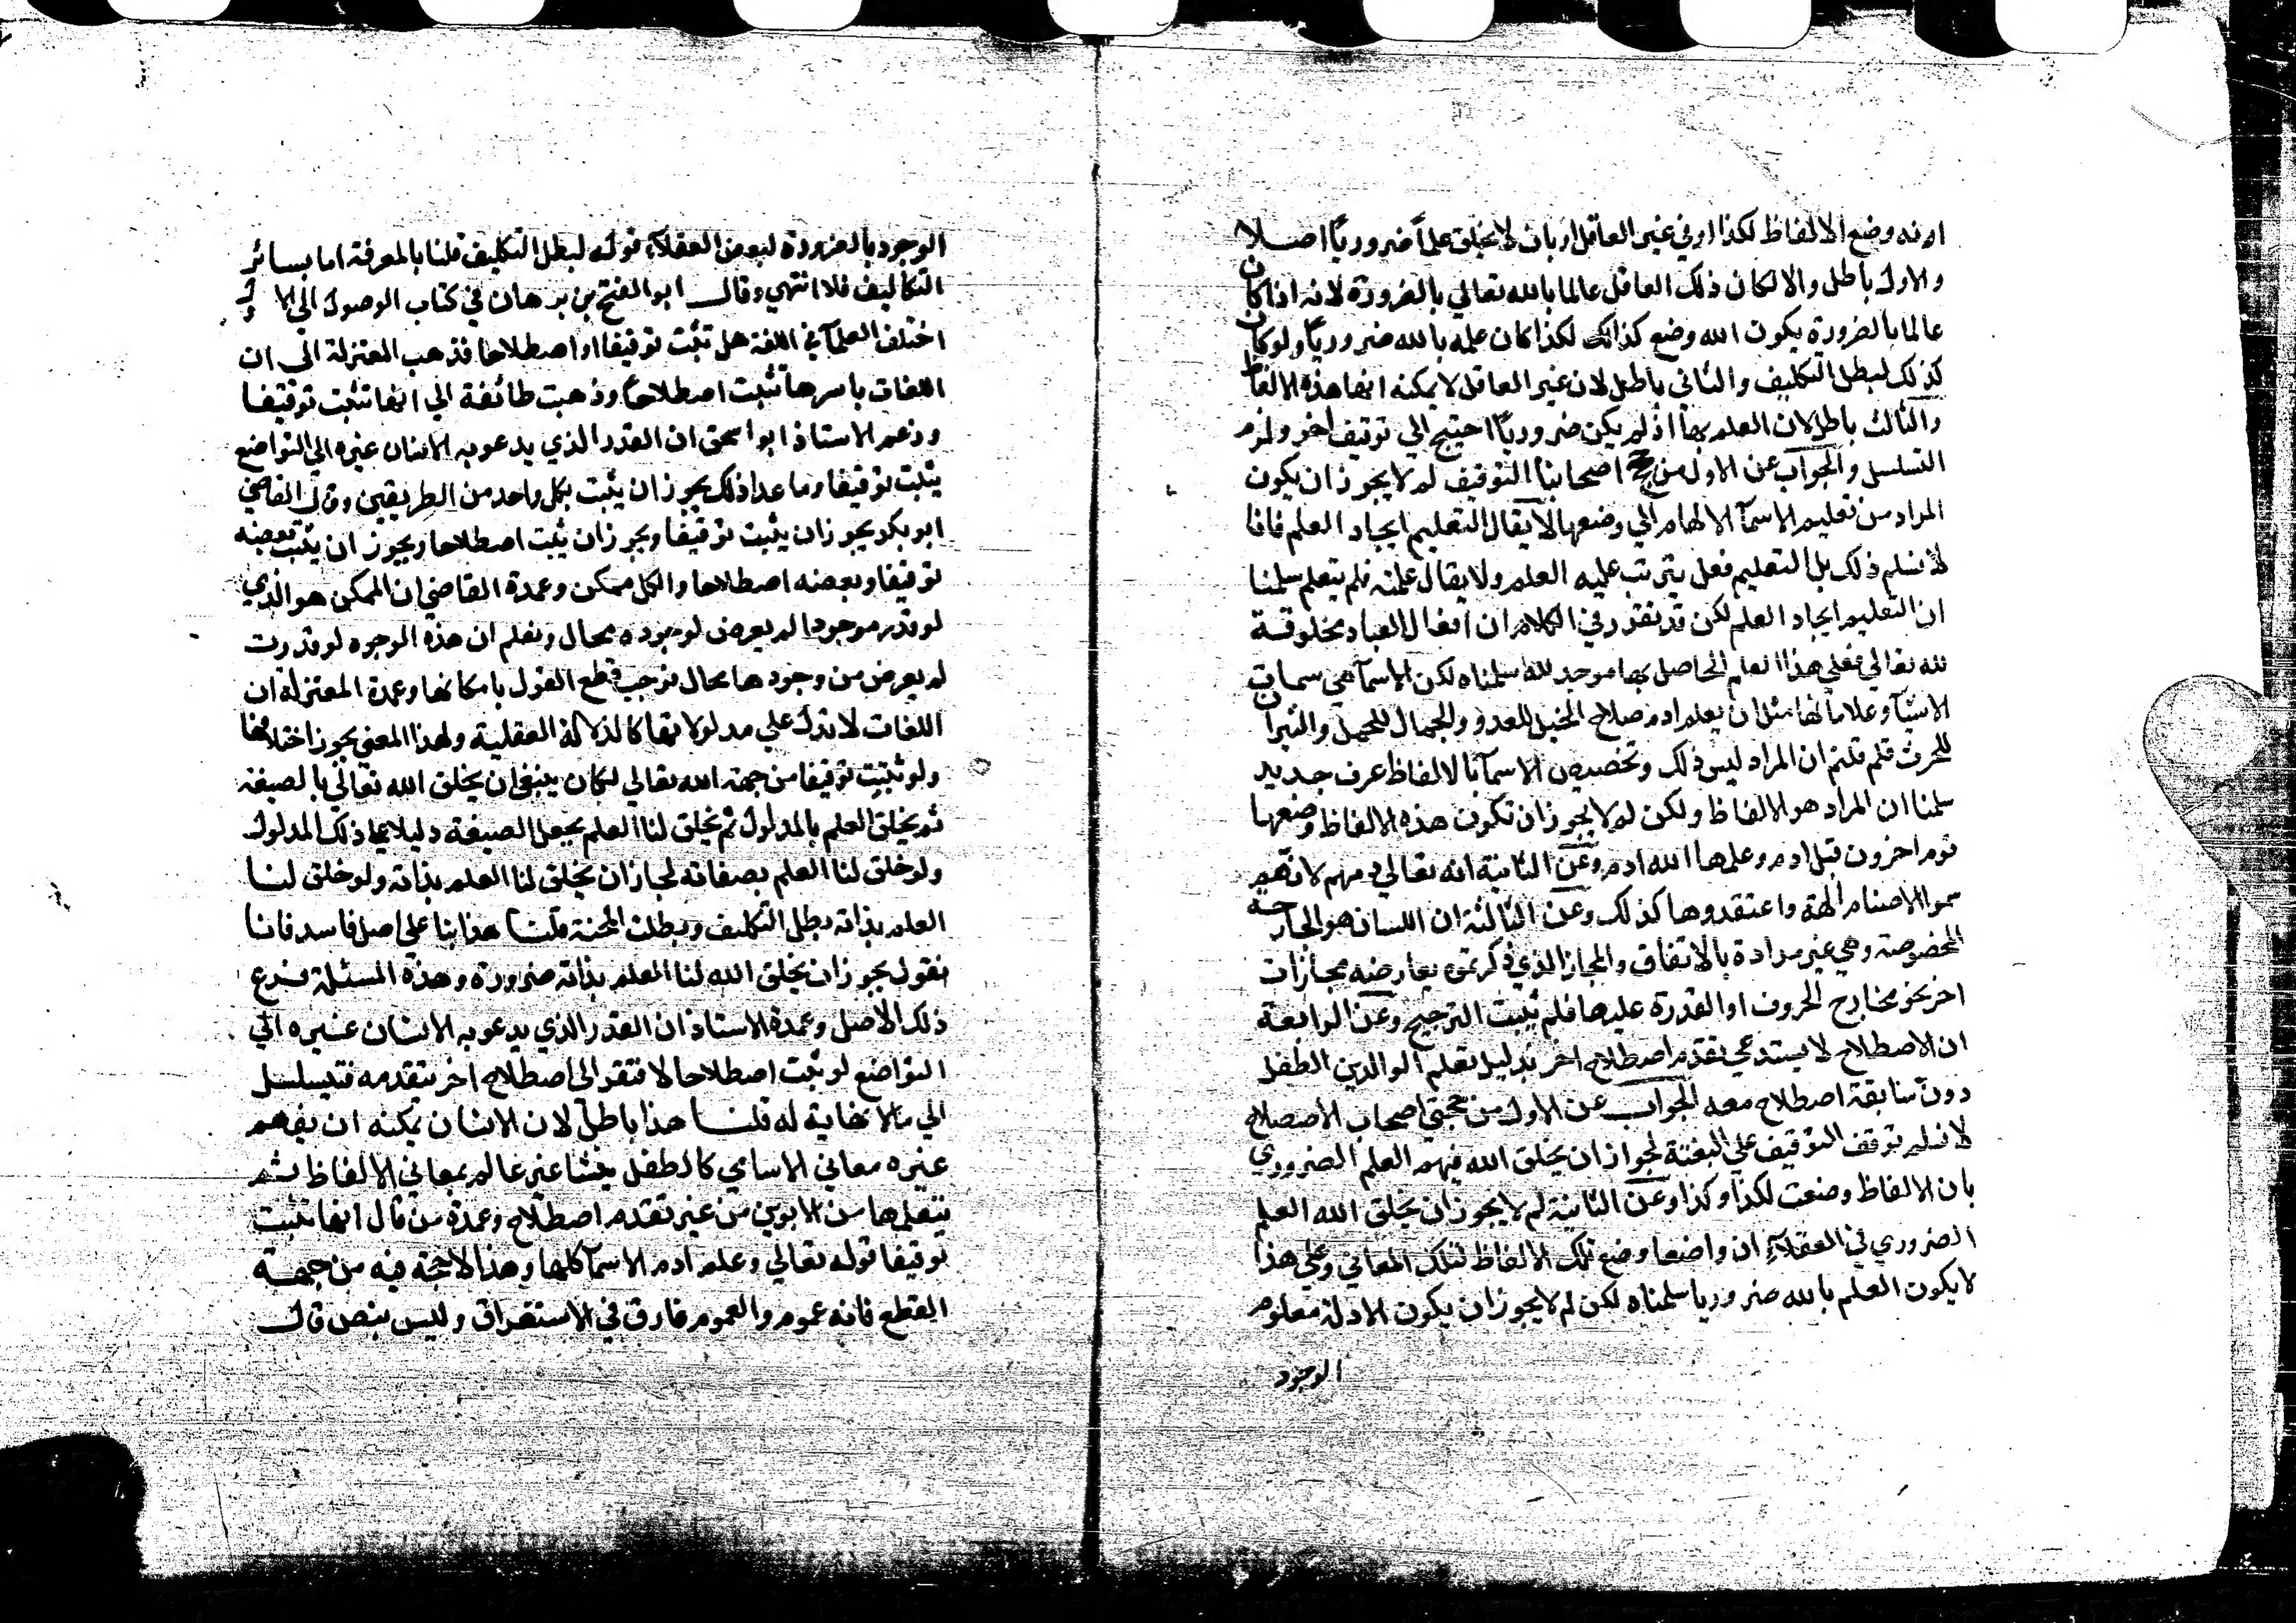 انه وضع الالفاظ لكذا او في غير العاقل او بان لا يخلق علما ضروريا اصلا
والاول باطل والا لكان ذلك العاقل عالما بالله تعالي بالضرورة لانه اذا كان
عالما بالضرورة يكون الله وضع كذا لكذا كان علمه بالله ضروريا ولو كان
كذلك لبطل التكليف والثاني باطل لان غير العاقل لا يمكنه انها هذه الالفاظ
والثالث باطل لان العلم بها اذ لم يكن ضروريا احتيج الي توقيف اخر ولزم
التسلسل والجواب عن الاول من اصحابنا التوقيف لم لا يجوز ان يكون
المراد من تعليم الاسمآ الالهام الي وضعها لا يقال التعليم ايجاد العلم فانا
لا نسلم ذلك بل التعليم فعل يترتب عليه العلم ولا يقال علمته فلم يتعلم سلمنا
ان التعليم ايجاد العلم لكن قد تقرر في الكلام ان افعال العباد مخلوقة
لله تعالي فعلي هذا العلم الحاصل بها موجد لله سلمناه لكن الاسمآ هي سمات
الاشيآ وعلاماتها مثل ان يعلم ادم صلاح الخيل للعدو والجمال للحمل والثيران
للحرث فلم قلتم ان المراد ليس ذلك وتخصيص الاسمآ بالالفاظ عرف جديد
سلمنا ان المراد هو الالفاظ ولكن لم لا يجوز ان تكون هذه الالفاظ وضعها
قوم اخرون قبل ادم وعلمها الله ادم وعن الثانية انه تعالي ذمهم لانهم
سموا الاصنام الهة واعتقدوها كذلك وعن الثالثة ان اللسان هو الجارحة
المخصوصة وهي غير مرادة بالاتفاق والمجاز الذي ذكرتموه يعارضه مجازات
اخر نحو مخارج الحروف او القدرة عليها فلم يثبت الترجيح وعن الرابعة
ان الاصطلاح لا يستدعي تقدم اصطلاح اخر بدليل تعلم الوالدين الطفل
دون سابقة اصطلاح معه الجواب عن الاول من حجتي اصحاب الاصطلاح
لا نسلم توقف التوقيف علي البعثة لجواز ان يخلق الله فيهم العلم الضروري
بان الالفاظ وضعت لكذا وكذا وعن الثانية لم لا يجوز ان يخلق الله العلم
الضروري في العقلآء ان واضعا وضع تلك الالفاظ لتلك المعاني وعلي هذا
لا يكون العلم بالله ضروريا سلمناه لكن لم لا يجوز ان يكون الادلة معلوم
الوجود
الوجود بالضرورة لبعض العقلآء قوله لبطل التكليف قلنا بالمعرفة اما بسائر
التكاليف فلا انتهي وقال ابو الفتح بن برهان في كتاب الوصول الي الا
اختلف العلمآ في اللغة هل تثبت توقيفا او اصطلاحا فذهب المعتزلة الي ان
اللغات باسرها تثبت اصطلاحا وذهبت طائفة الي انها تثبت توقيفا
وزعم الاستاذ ابو اسحق ان القدر الذي يدعو به الانسان غيره الي التواضع
يثبت توقيفا وما عدا ذلك يجوز ان يثبت بكل واحد من الطريقين وقال القاضي
ابو بكر يجوز ان يثبت توقيفا ويجوز ان يثبت اصطلاحا ويجوز ان يثبت بعضه
توقيفا وبعضه اصطلاحا والكل ممكن وعمدة القاضي ان الممكن هو الذي
لو قدر موجودا لم يعرض لوجوده محال ونعلم ان هذه الوجوه لو قدرت
لم يعرض من وجودها محال فوجب قطع القول بامكانها وعمدة المعتزلة ان
اللغات لا تدل علي مدلولاتها كالدلالة العقلية ولهذا المعني يجوز اختلافها
ولو ثبتت توقيفا من جهة الله تعالي لكان ينبغي ان يخلق الله تعالي بالصيغة
ثم يخلق العلم بالمدلول ثم يخلق لنا العلم بجعل الصيغة دليلا علي ذلك المدلول
ولو خلق لنا العلم بصفاته لجاز ان يخلق لنا العلم بذاته ولو خلق لنا
العلم بذاته بطل التكليف وبطلت المحنة قلنا هذا بنا علي اصل فاسد فانا
نقول يجوز ان يخلق الله لنا العلم بذاته ضرورة وهذه المسئلة فرع
ذلك الاصل وعمدة الاستاذ ان القدر الذي يدعو به الانسان غيره الي
التواضع لو ثبت اصطلاحا لافتقر الي اصطلاح اخر يتقدمه فيتسلسل
الي ما لا نهاية له قلنا هذا باطل لان الانسان يمكنه ان يفهم
غيره معاني الاسامي كالطفل ينشا غير عالم بمعاني الالفاظ ثم
يتعلمها من الابوين من غير تقدم اصطلاح وعمدة من قال انها تثبت
توقيفا قوله تعالي وعلم ادم الاسمآ كلها وهذا لا حجة فيه من جهة
القطع فانه عموم والعموم فارق في الاستغراق وليس بنص قال